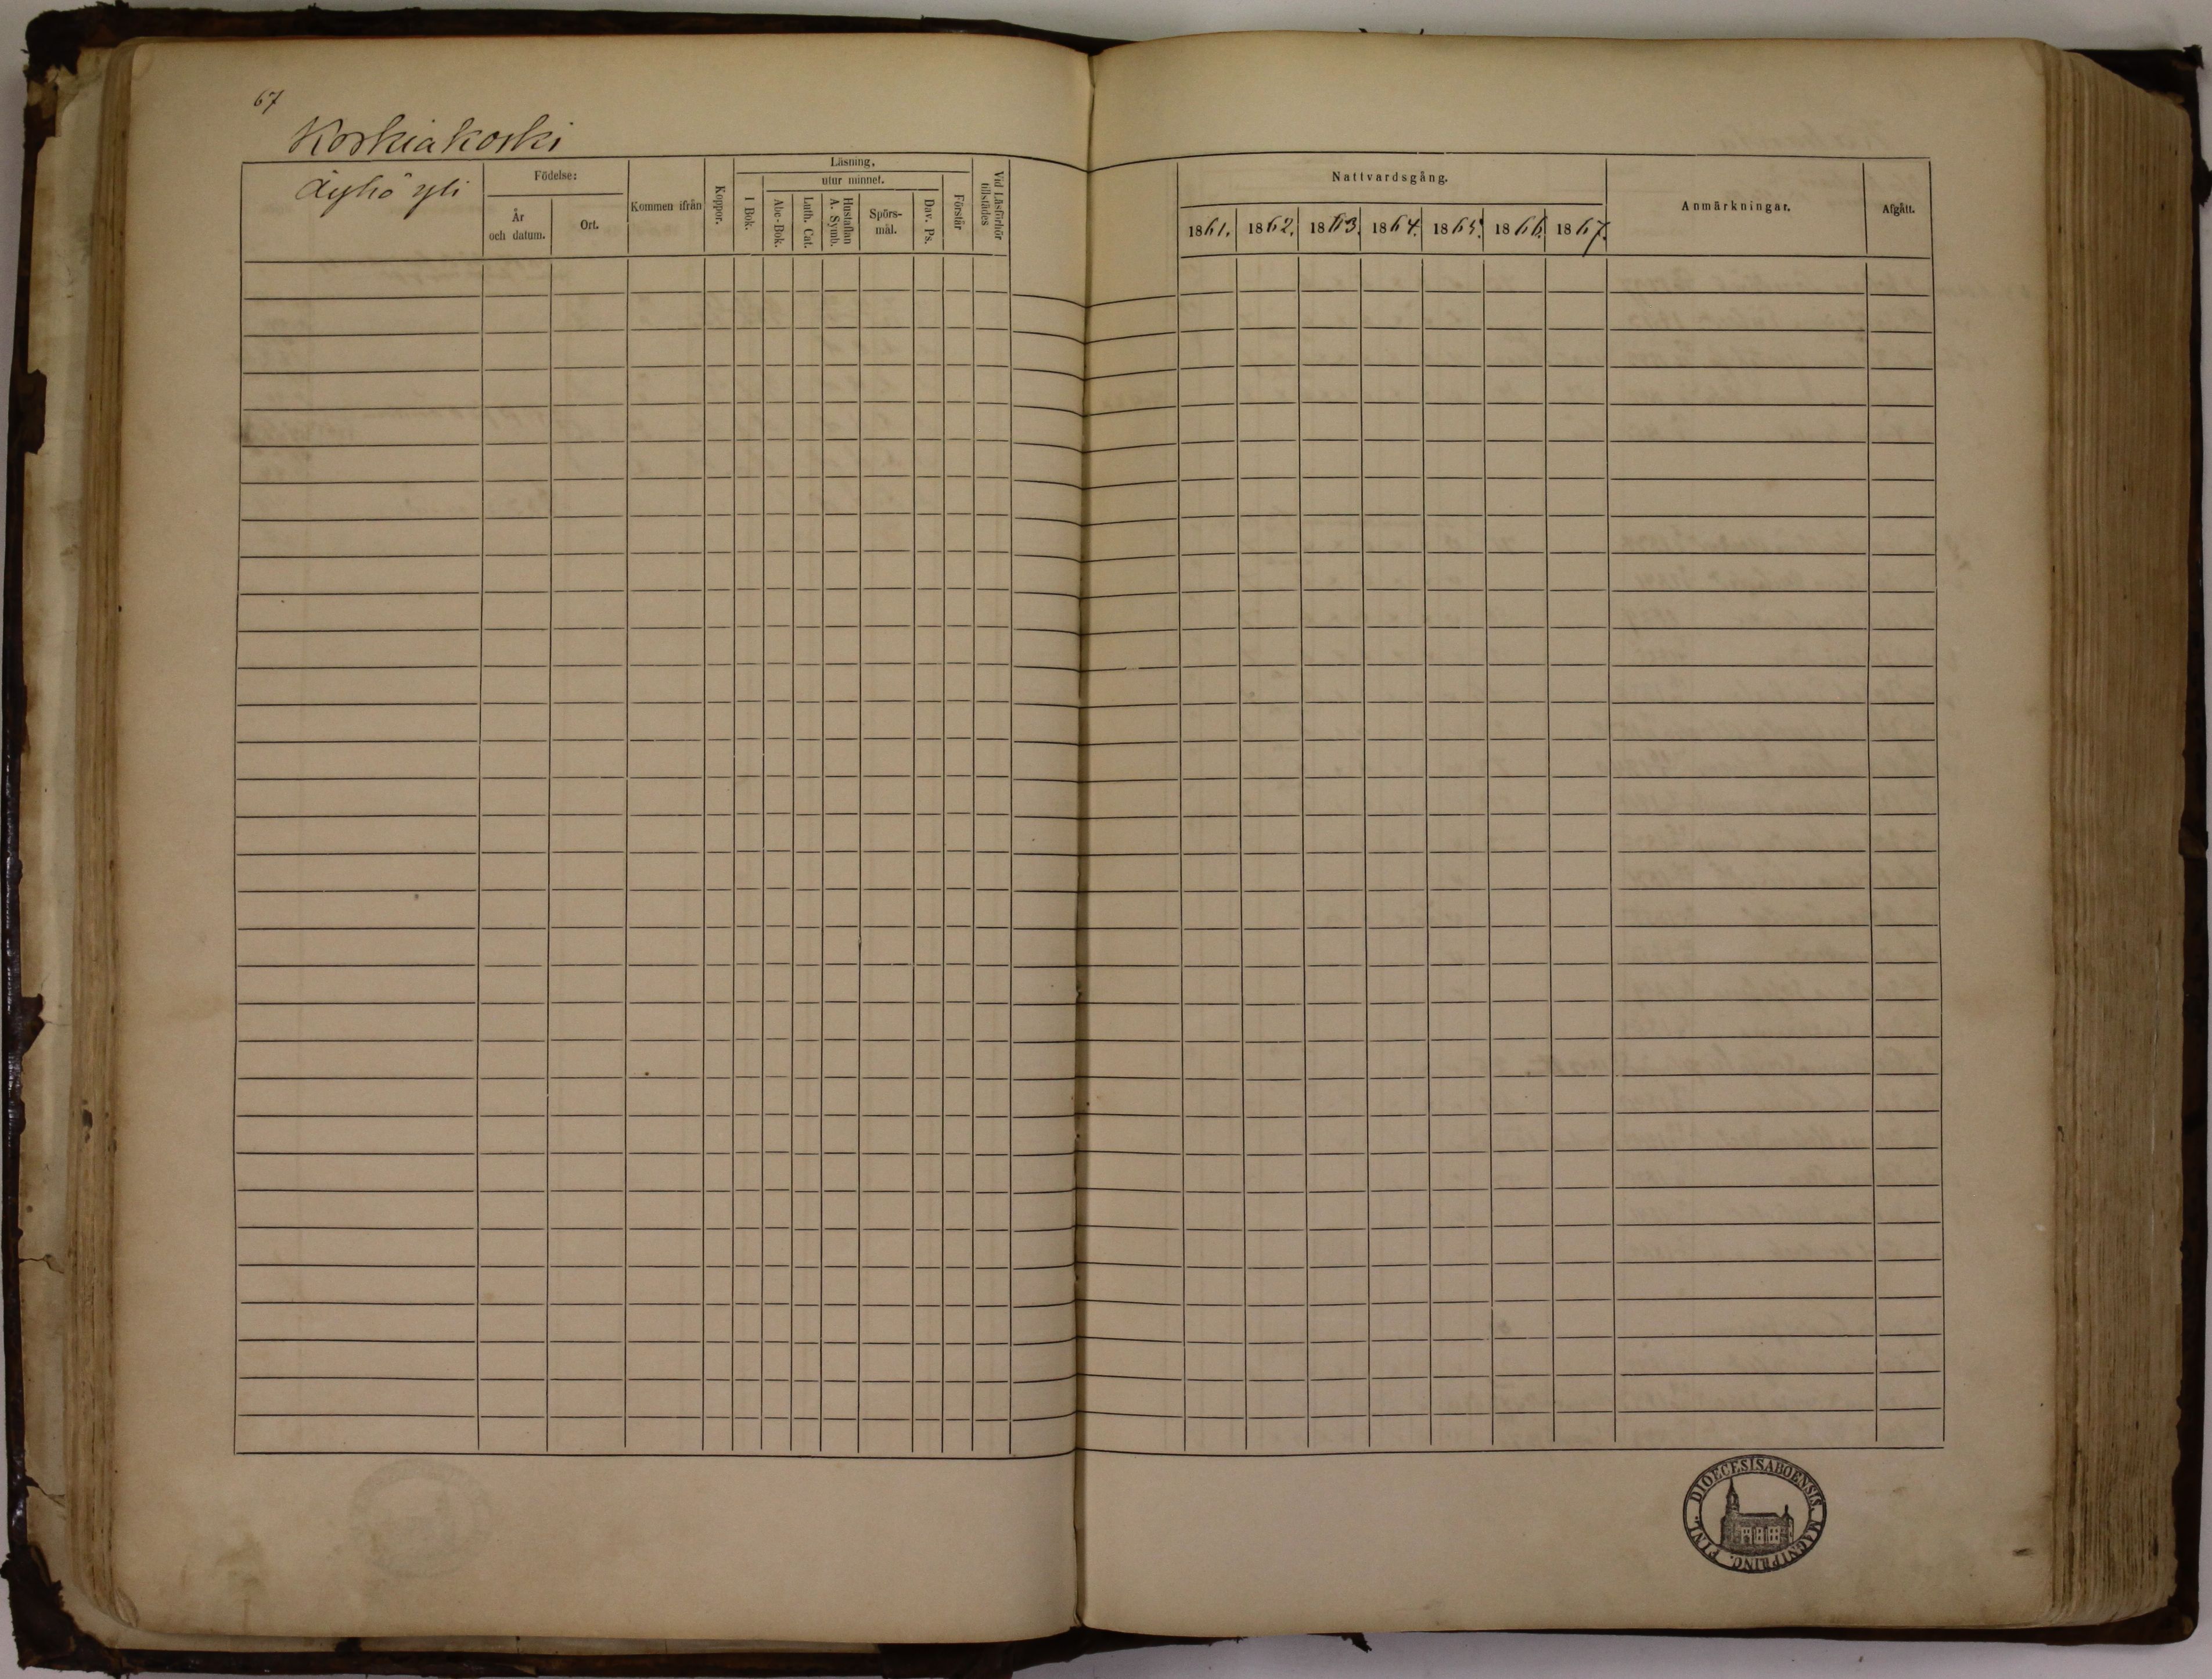 67
Korkiakoski
Äyhö yli
Födelse:
År
och datum.
Ort.
Kommen ifrån
Koppor.
Läsning,
utur minnet.
I Bok.
Abc-Bok.
Luth. Cat.
Hustaflan
A. Symb.
Spörs-
mål.
Dav. Ps.
Förstår
Vid Läsförhör
tillstädes
Nattvardsgång.
1861. 1862. 1863. 1864. 1865. 1866. 1867.
Anmärkningar.
Afgått.
DIOECESIS ABOENSIS. MAGNI PRINC. FINL.